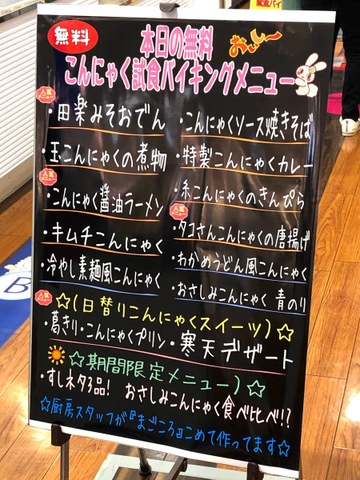 無料
本日の無料
おいしー
こんにゃく試食バイキングメニュー
人気メニュー
・田楽みそおでん
・こんにゃくソース焼きそば
・玉こんにゃくの煮物
・特製こんにゃくカレー
人気メニュー
・こんにゃく醤油ラーメン
・糸こんにゃくのきんぴら
・キムチこんにゃく
人気メニュー
・タコさんこんにゃくの唐揚げ
・冷やし素麺風こんにゃく
・わかめうどん風こんにゃく
・おさしみこんにゃく 青のり
人気メニュー
☆(日替りこんにゃくスイーツ)☆
・葛きり・こんにゃくプリン・寒天デザート
☆(期間限定メニュー)☆
・すしネタ3品! おさしみこんにゃく食べ比べ!?
☆厨房スタッフが『まごころ』こめて作ってます☆